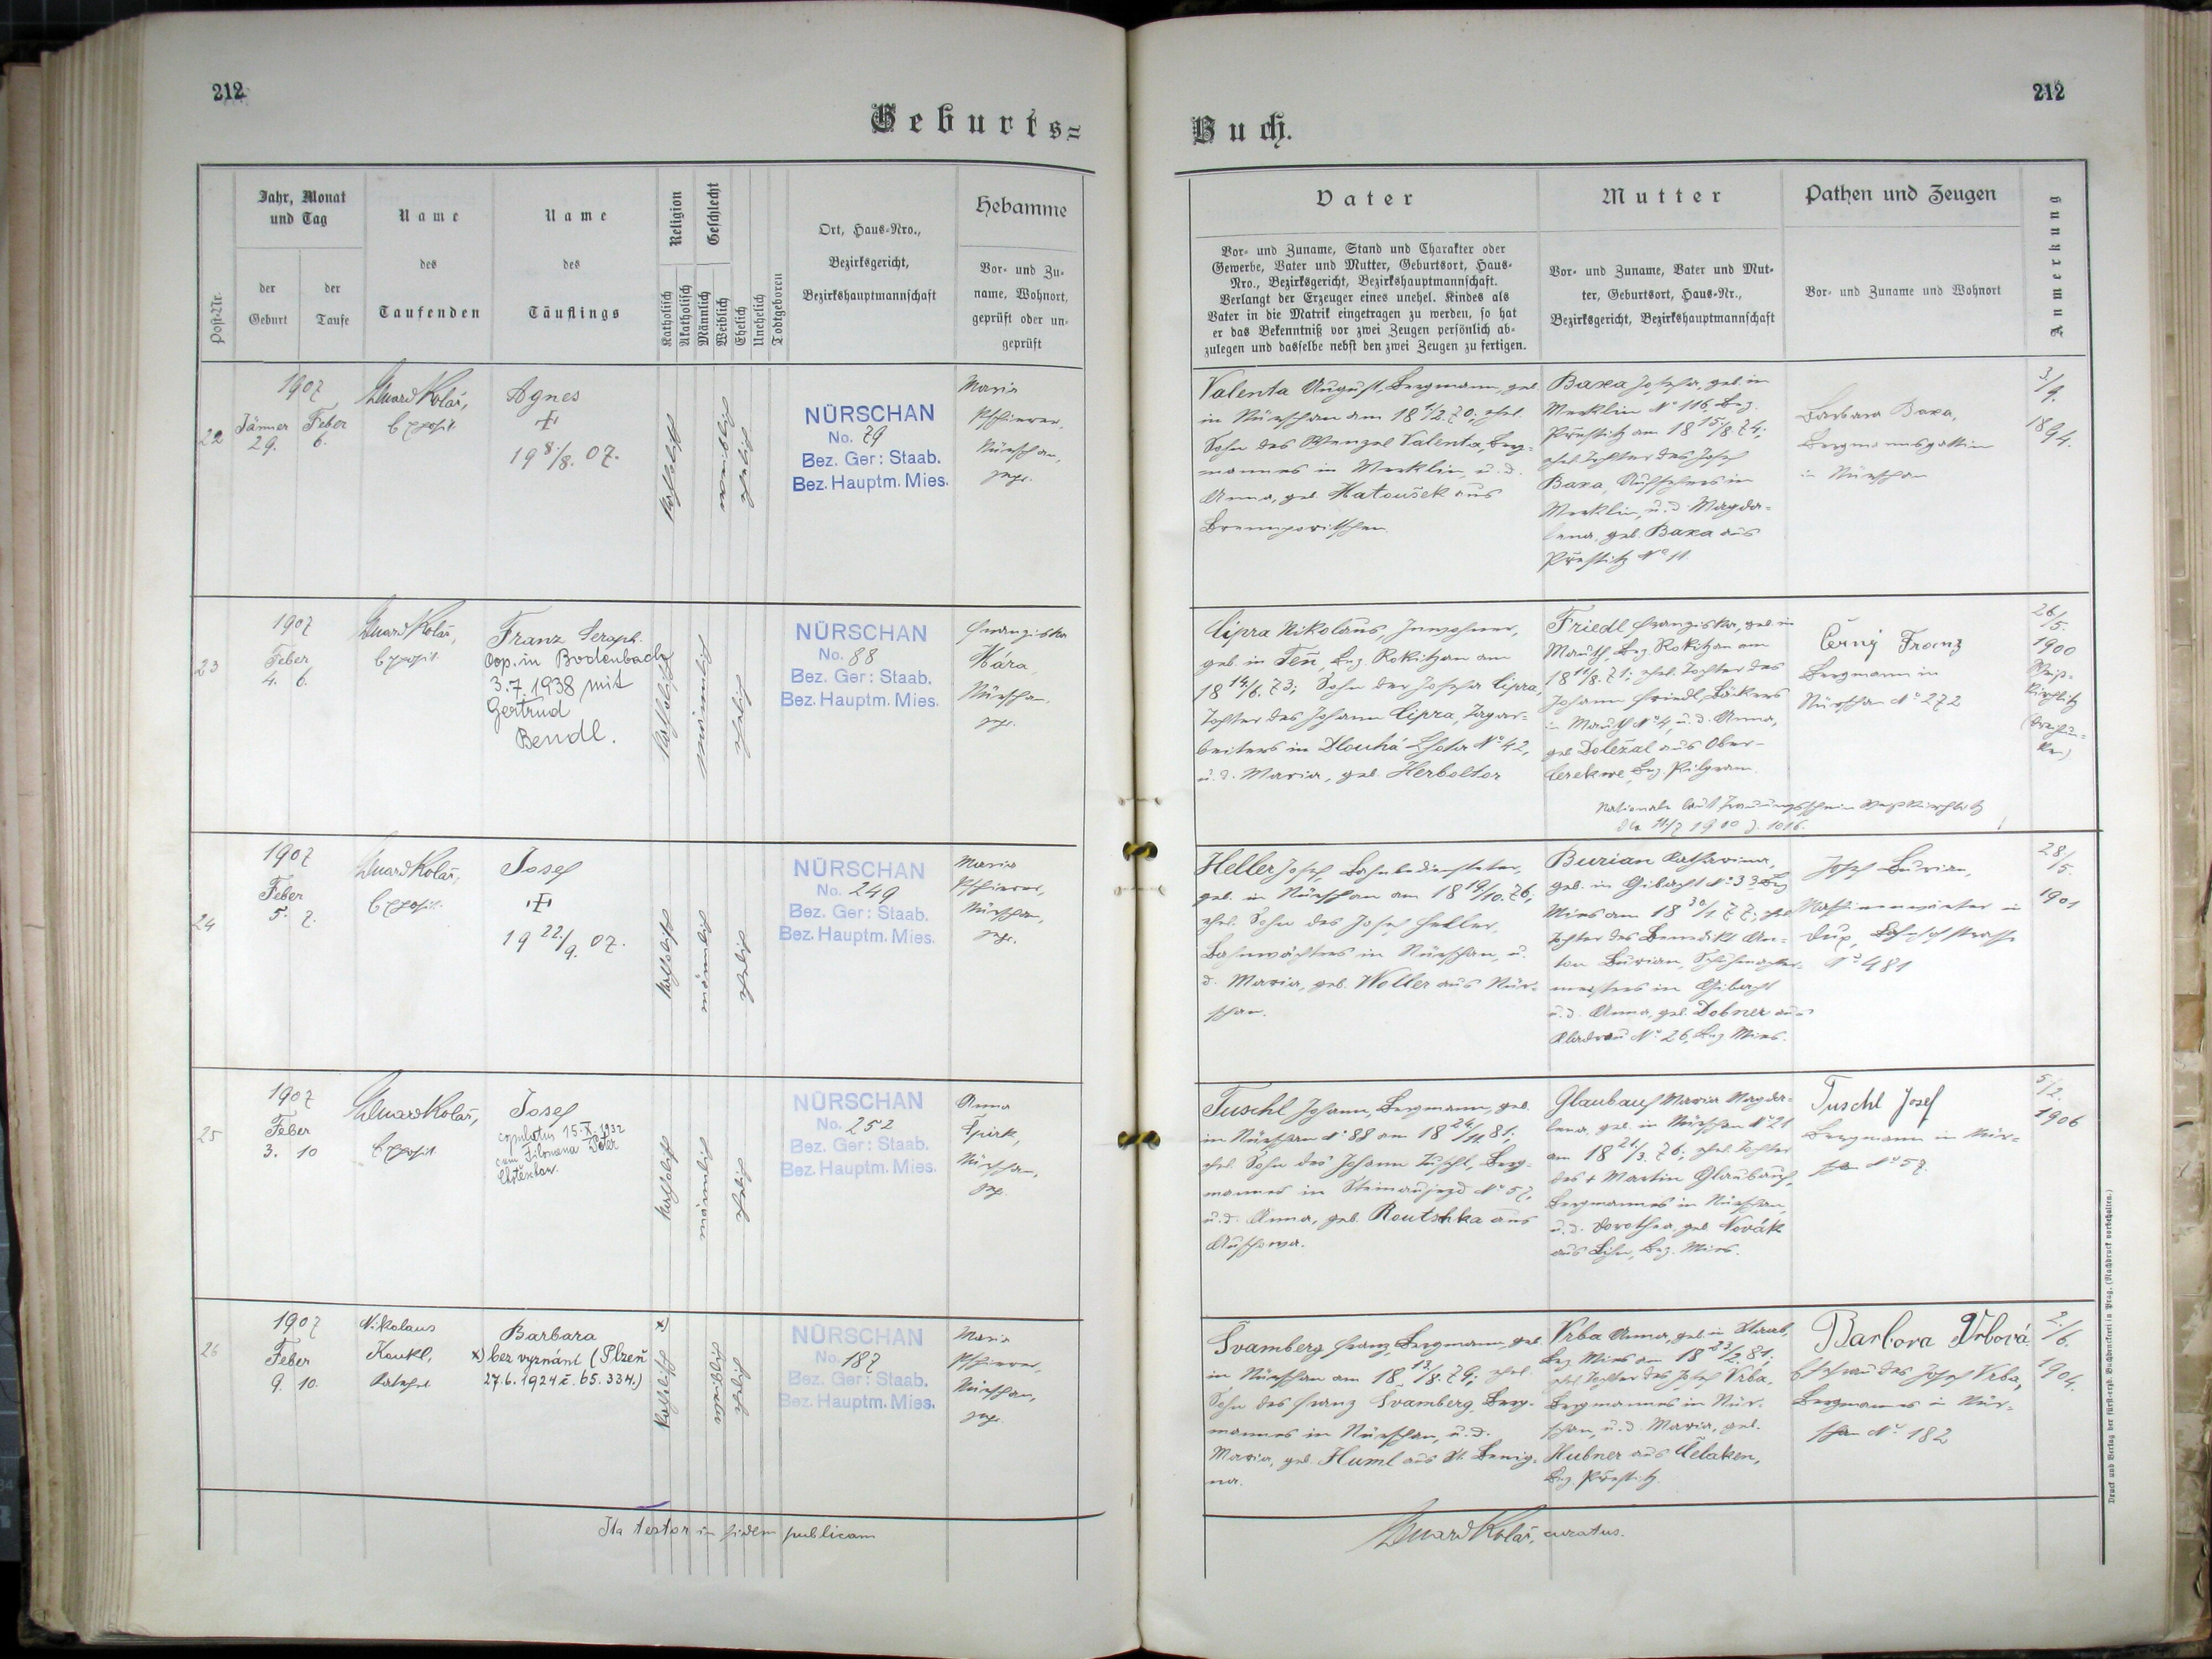 212
Geburts=
Jahr, Monat
und Tag
der
Geburt
der
Taufe
Post-Nr.
Name
des
Taufenden
Name
des
Täuflings
Religion
Geschlecht
Katholisch
Akatholisch
Männlich
Weiblich
Ehelich
Unehelich
Todtgeboren
Ort, Haus-Nro.,
Bezirksgericht,
Bezirkshauptmannschaft
Hebamme
Vor- und Zu-
name, Wohnort,
geprüft oder un-
geprüft
22
1907
Jänner Feber
29. 6.
Eduard Kolář,
Exposit.
Agnes
19 8/8. 07.
katholisch
weiblich
ehelich
NÜRSCHAN
No. 79
Bez. Ger: Staab.
Bez. Hauptm. Mies.
Maria
Nürschan,
gepr.
23
1907
Feber
4. 6.
Eduard Kolář,
Exposit.
Franz Seraph.
Cop. in Bodenbach
3.7.1938 mit
Gertrud
Bendl.
katholisch
männlich
ehelich
NÜRSCHAN
No. 88
Bez. Ger: Staab.
Bez. Hauptm. Mies.
Franziska
Hára,
Nürschan,
gepr.
24
1907
Feber
5. 7.
Eduard Kolář,
Exposit.
Josef
19 22/9. 07.
katholisch
männlich
ehelich
NÜRSCHAN
No. 249
Bez. Ger: Staab.
Bez. Hauptm. Mies.
Maria
Nürschan,
gepr.
25
1907
Feber
3. 10
Eduard Kolář,
Exposit.
Josef
copulatus 15.X.1932
cum Filomena
Chotěschau.
katholisch
männlich
ehelich
NÜRSCHAN
No. 252
Bez. Ger: Staab.
Bez. Hauptm. Mies.
Anna
Spirk,
Nürschan,
gepr.
26
1907
Feber
9. 10.
Nikolaus
Koukl,
Katechet
Barbara
x) bez vyznání (Plzeň
27.6.1924 č. 65.334.)
x)
katholisch
weiblich
ehelich
NÜRSCHAN
No. 182
Bez. Ger: Staab.
Bez. Hauptm. Mies.
Maria
Nürschan,
gepr.
Ita testor in fidem publicam
212
Buch.
Vater
Vor- und Zuname, Stand und Charakter oder
Gewerbe, Vater und Mutter, Geburtsort, Haus-
Nro., Bezirksgericht, Bezirkshauptmannschaft.
Verlangt der Erzeuger eines unehel. Kindes als
Vater in die Matrik eingetragen zu werden, so hat
er das Bekenntniß vor zwei Zeugen persönlich ab-
zulegen und dasselbe nebst den zwei Zeugen zu fertigen.
Mutter
Vor- und Zuname, Vater und Mut-
ter, Geburtsort, Haus-Nr.,
Bezirksgericht, Bezirkshauptmannschaft
Pathen und Zeugen
Vor- und Zuname und Wohnort
Anmerkung
Valenta August, Bergmann, geb.
in Nürschan am 18 /2. 70; ehel.
Sohn des Wenzel Valenta, Berg-
mannes in Merklin, u. d.
Anna, geb. Hatoušek aus
Brennporitschen.
Baxa Josefa, geb. in
Merklin No 116, Bez.
Přestitz am 18 15/8. 74;
ehel. Tochter des Josef
Baxa, Aufsehers in
Merklin, u. d. Magda-
lena, geb. Baxa aus
Přestitz No 11.
Barbara Baxa,
Bergmannsgattin
in Nürschan
3/9.
1894.
Cipra Nikolaus, Inwohner,
geb. in Těň, Bez. Rokitzan am
18 14/6. 73; Sohn der Josefa Cipra,
Tochter des Johann Cipra, Tagar-
beiters in Dlouhá Lhota No 42,
u. d. Maria, geb. Herboltor
Friedl Franziska, geb. in
Mauth, Bez. Rokitzan am
18 11/8. 71; ehel. Tochter des
Johann Friedl, Bäckers
in Mauth No 4, u. d. Anna,
geb. Doležal aus Ober-
Cerekwe, Bez. Pilgram.
Černý Franz
Bergmann in
Nürschan No 272
26/5.
1900
Weiß-
kirchlitz
Nationale laut Trauungsschein Weißkirchlitz
dto 11/7 1900 Z. 1016.
Heller Josef, Bahnbediensteter,
geb. in Nürschan am 18 19/10. 76;
ehel. Sohn des Josef Heller,
Bahnwächters in Nürschan, u.
d. Maria, geb. Woller aus Nür-
schan.
Burian Katharina,
geb. in Gibacht No 33 Bez.
Mies am 18 30/1. 77; ehel.
Tochter des Benedikt An-
ton Burian, Schuhmacher-
meisters in Gibacht
u. d. Anna, geb. Dobner aus
Kladrau No 26, Bez. Mies.
Josef Burian,
Maschinenwärter in
Dux, Bahnhofstrasse
No 481
28/5.
1901
Tuschl Johann, Bergmann, geb.
in Nürschan No 88 am 18 24/11. 81;
ehel. Sohn des Johann Tuschl, Berg-
mannes in Steinaujezd No 57,
u. d. Anna, geb. Routschka aus
Auschowa.
Glaubauf Maria Magda-
lena, geb. in Nürschan No 21
am 18 21/3. 76; ehel. Tochter
des + Martin Glaubauf,
Bergmannes in Nürschan,
u. d. Dorothea, geb. Novák
aus Lihn, Bez. Mies.
Tuschl Josef
Bergmann in Nür-
schan No 57.
5/2.
1906
Švamberg Franz, Bergmann, geb.
in Nürschan am 18 13/8. 79; ehel.
Sohn des Franz Švamberg, Berg-
mannes in Nürschan, u. d.
Maria, geb. Huml aus St. Benig-
na.
Vrba Anna, geb. in Staab,
Bez. Mies am 18 23/2. 81;
ehel. Tochter des Josef Vrba,
Bergmannes in Nür-
schan, u. d. Maria, geb.
Hubner aus Čelaken,
Bez. Přestitz.
Barbora Vrbová
Ehefrau des Josef Vrba,
Bergmannes in Nür-
schan No 182
2/6.
1904.
Eduard Kolář, curatus.
Druck und Verlag der fürst-erzb. Buchdruckerei in Prag. (Nachdruck vorbehalten.)